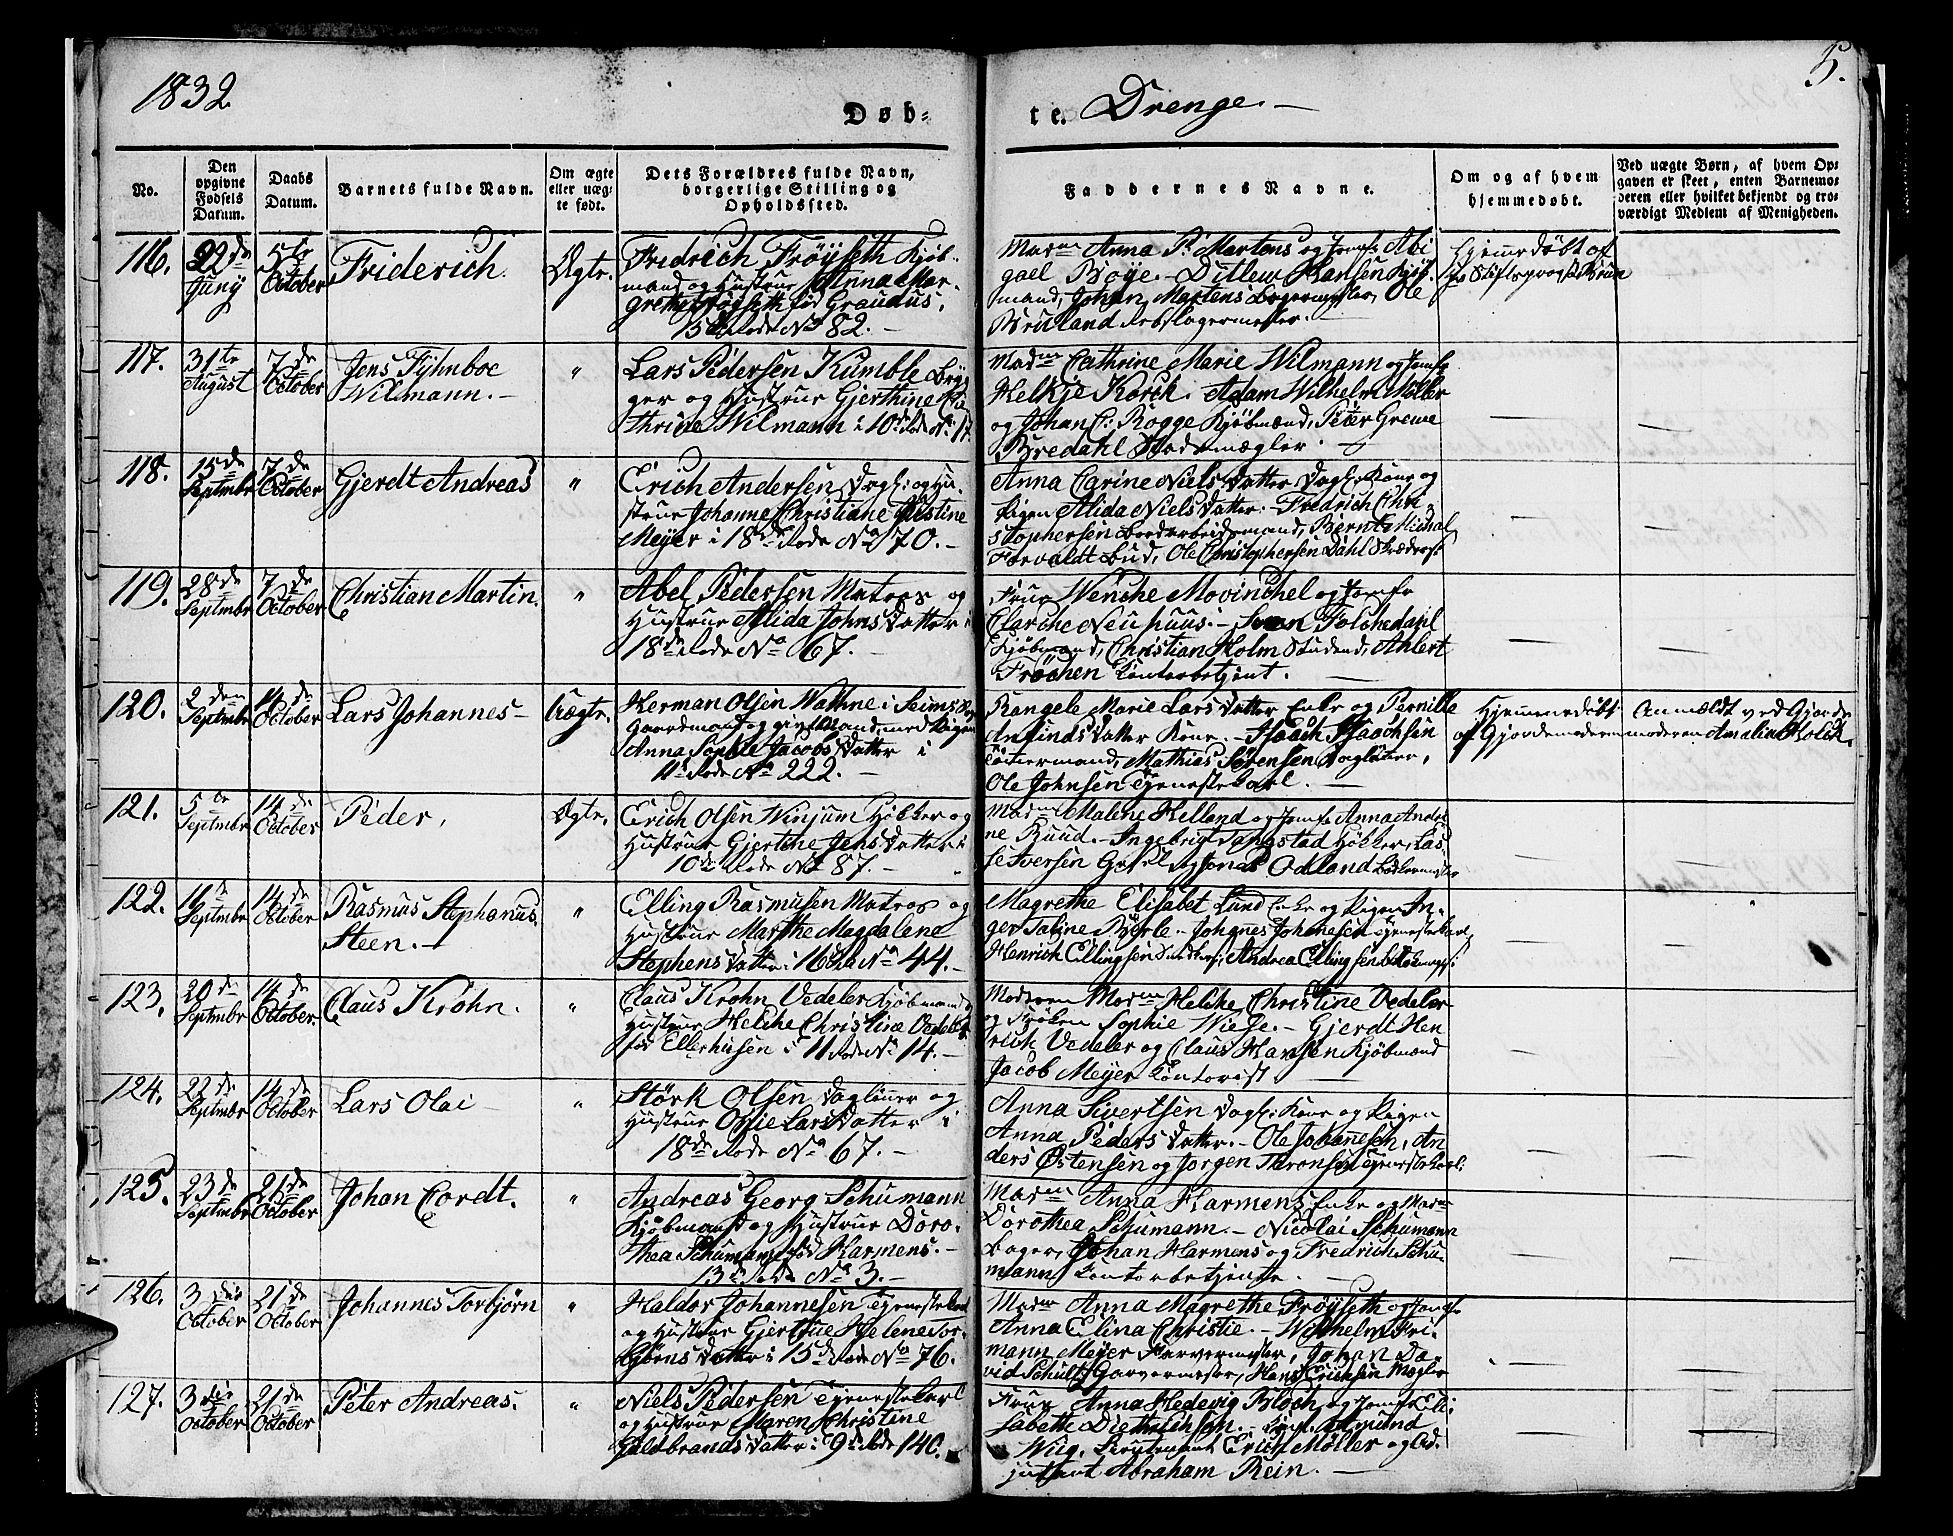 1832.
5.
Døb-
te. Drenge. —
No.
Den opgivne Fødsels Datum.
Daabs Datum.
Barnets fulde Navn.
Om ægte eller uæg- te født.
Dets Forældres fulde Navn, borgerlige Stilling og Opholdssted.
Faddernes Navne.
Om og af hvem hjemmedøbt.
Ved uægte Børn, af hvem Op-
gaven er skeet, enten Barnemo-
deren eller hvilket bekjendt og tro-
værdigt Medlem af Menigheden.
116. 22de Juny 5te October Friderich. Ægte.
Fredrich Frøyseth Kjøb-
mand og Hustrue Anna Mar-
grethe Frøyseth fød Graudus.
15de Rode No 82. —
Madme Anna P. Martens og Jomfr Abi
gael Boye. — Ditlew Hansen Kjøb
mand, Johan Martens Bagermester, Ole
Bruland Rebslagermester. —
Hjemedøbt af
Hr Stiftsprovst Bruun
117. 31te August 7de October Jens Fyhnboe
Wilmann. — "
Lars Pedersen Kumble Bryg
ger og Hustrue Gjerthine Ca
thrine Wilmann i 10de Rode No 17.
Madme Cathrine Marie Wilmann og Jomfr
Helkje Korck. Adam Wilhelm Møller
og Johan C. Rogge Kjøbmænd, Peter Grewe
Bredahl Stadsmægler. —
118. 15de Septmbr 7de October Gjerdt Andreas "
Erich Andersen Dagl: og Hu-
strue Johanne Christiane Justine
Meyer i 18de Rode No 70. —
Anna Carine Niels Datter Dagl: Kone og
Pigen Alida Niels Datter. — Fredrich Chri
stophersen Bordarbeidsmand, Bernt Michal
Forvaldt Bud, Ole Christophersen Dahl Skrædersv
119. 28de Septmbr 7de October Christian Martin. "
Abel Pedersen Matros og
Hustrue Alida Johns Datter i
18de Rode No 67. —
Frue Wenche Mowinchel og Jomfr
Clarche Neuhuus. — Svan Folchedahl
Kjøbmand, Christian Holm Student, Ahlert
Frøchen Contorbetjent.
120. 2den Septmbr 14de October Lars Johannes — Uægte.
Herman Olsen Wathne i Seims
Gaardmand og givt Mand, med Pigen
Anna Sophie Jacobs Datter i
11te Rode No 222. —
Rangele Marie Lars Datter Enke og Pernille
Amunds Datter Kone. — Isaach Isaachsen
Tømermand, Mathias Sørensen Dagleier,
Ole Johnsen Tjenestekarl. —
Hjemmedøbt
af Gjordemoderen
Anmældt ved Gjorde
moderen Amalia Holck.
121. 5te Septmbr 14de October Peder, Ægte.
Erich Olsen Winjum Høkker og
Hustrue Gjertche Jens Datter i
10de Rode No 87. —
Madme Malene Helland og Jomfr Anna Andre
ne Ruud. — Ingebrigt Tangstad Høkker, Las
se Iversen og Jonas Odland
122. 16de Septmbr 14de October Rasmus Stephanus
Steen. — "
Elling Rasmusen Matros og
Hustrue Marthe Magdalena
Stephens Datter i 16de No 44. —
Magrethe Elisabet Lund Enke og Pigen In-
ger Taline Berle. — Johanes Johanesen Tjenestekarl,
Henrich Ellingsen Snedkersv, Andrea Ellingsen
123. 20de Septmbr 14de October. Claus Krohn. "
Claus Krohn Vedeler Kjøbmand og
Hustrue Helche Christine Vedeler
fød Ellerhusen i 11 Rode No 14. —
Moderen Madme Helche Christine Vedeler
og Frøken Sophie Wiese. — Gjerdt Hen
rich Vedeler og Claus Hansen Kjøbmænd
Jacob Meyer Contorist —
124. 22de Septmbr 14de October Lars Olai — "
Størk Olsen Dagleier og
Hustrue Ossie Lars Datter i
18de Rode No 67. —
Anna Sivertsen Dagl: Kone og Pigen
Anna Peders Datter. — Ole Johanesen, An
ders Østensen og Jørgen Thronsen Tjenestekarl.
125. 23de Septmbr 21de October Johan Cordt. "
Andreas Georg Schumann
Kjøbmand og Hustrue Doro-
thea Schumann fød Harmens. —
13de Rode No 3. —
Madme Anna Harmens Enke og Madme
Dorothea Schumann. — Nicolai Schumann
Bager, Johan Harmens og Fredrich Schu-
mann Contorbetjente. —
126. 3die October 21de October Johannes Torbjørn "
Haldor Johannesen Tjenestekarl
og Hustrue Gjertrue Helene Tor-
bjørns Datter i 15de Rode No 76.
Madme Anna Magrethe Frøyseth og Jomfr
Anna Elina Christie. — Wilhelm Fri-
mann Meyer Farvermester, Johan Da-
vid Schultz Garvermester, Hans Erichsen Mægler
127. 3die October 21de October Peter Andreas. "
Niels Pedersen Tjenestekarl
og Hustrue Maren Christine
Guldbrands Datter i 9de Rode 140.
Frue Anna Hedevig Bloch og Jomfr Eli
sabeth Diethrichson. — Amund
Wiig, Lieutenant Erich Møller og Ad-
jutant Abraham Rein. —